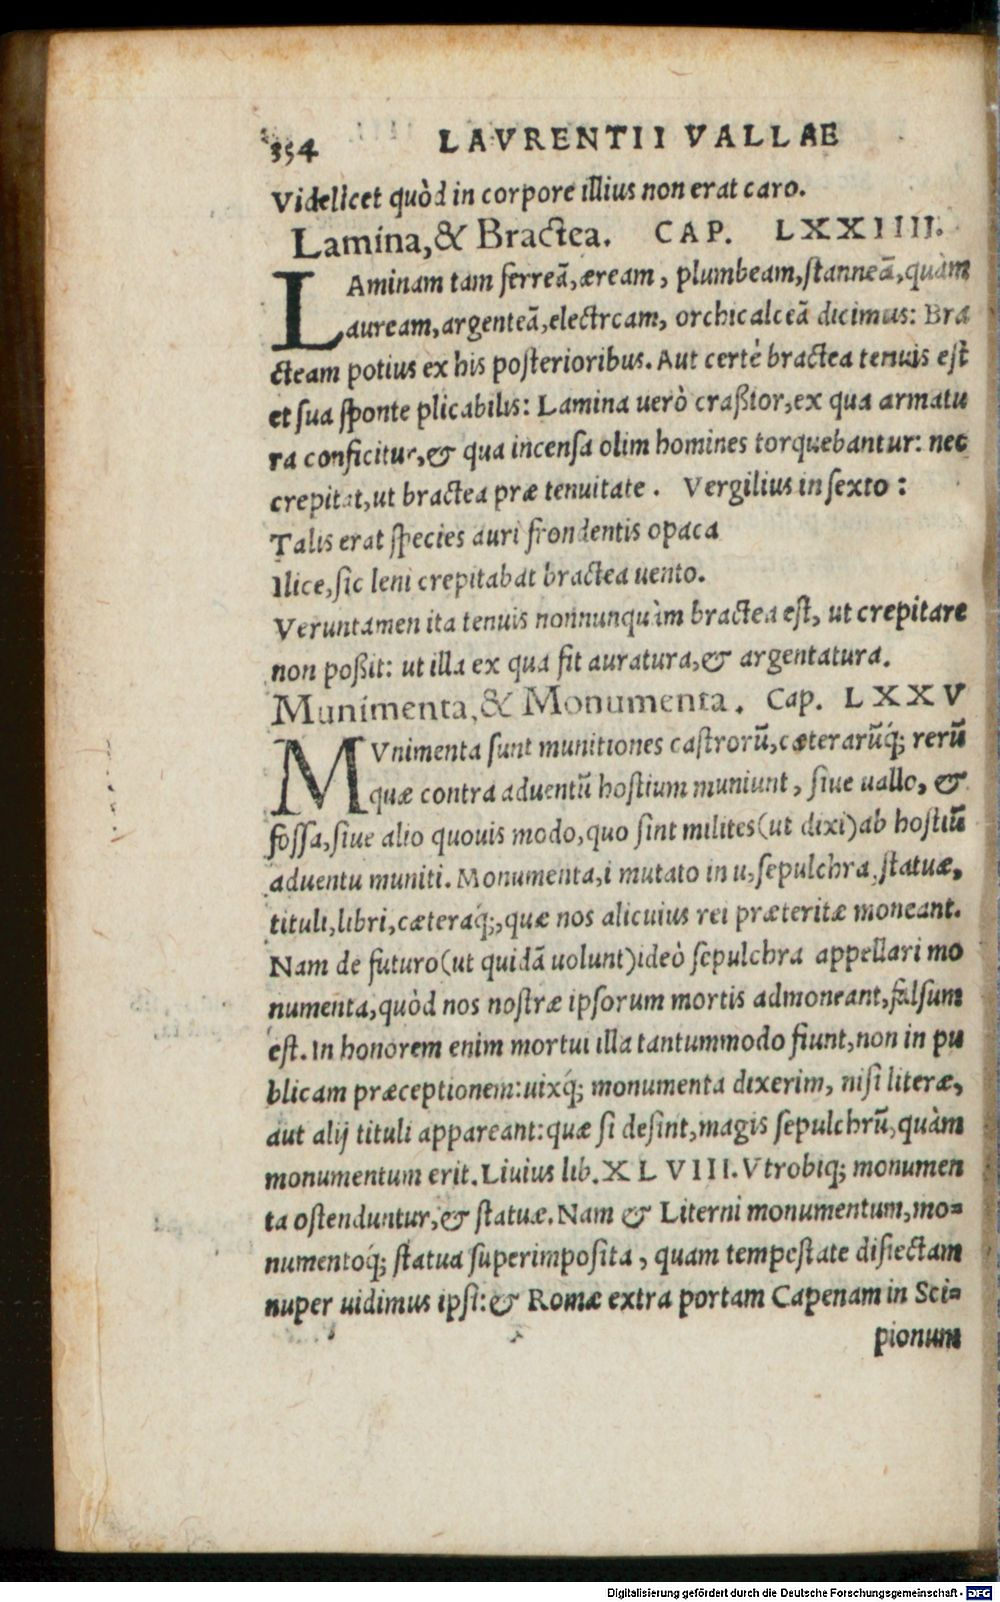 354 LAVRENTII VALLAE
Videlicet quòd in corpore illius non erat caro.
Lamina, & Bractea. CAP. LXXIIII.
LAminam tam ferreã, æream, plumbeam, stanneã, quàm
auream, argenteã, electream, orchicalceã dicimus: Bra
cteam potius ex his posterioribus. Aut certè bractea tenuis est
et sua sponte plicabilis: Lamina uerò craßior, ex qua armatu
ra conficitur, & qua incensa olim homines torquebantur: nec
crepitat, ut bractea præ tenuitate. Vergilius in sexto:
Talis erat species auri frondentis opaca
Ilice, sic leni crepitabat bractea uento.
Veruntamen ita tenuis nonnunquàm bractea est, ut crepitare
non poßit: ut illa ex qua fit auratura, & argentatura.
Munimenta, & Monumenta. Cap. LXXV
MVnimenta sunt munitiones castrorũ, cæterarũq́; rerũ
quæ contra aduentũ hostium muniunt, siue uallo, &
fossa, siue alio quouis modo, quo sint milites (ut dixi) ab hostiũ
aduentu muniti. Monumenta, i mutato in u, sepulchra, statuæ,
tituli, libri, cæteraq́;, quæ nos alicuius rei præteritæ moneant.
Nam de futuro (ut quidã uolunt) ideò sepulchra appellari mo
numenta, quòd nos nostræ ipsorum mortis admoneant, falsum
est. In honorem enim mortui illa tantummodo fiunt, non in pu
blicam præceptionem: uixq́; monumenta dixerim, nisi literæ,
aut alij tituli appareant: quæ si desint, magis sepulchrũ, quàm
monumentum erit. Liuius lib. XLVIII. Vtrobiq; monumen
ta ostenduntur, & statuæ. Nam & Literni monumentum, mo=
numentoq́; statua superimposita, quam tempestate disiectam
nuper uidimus ipsi: & Romæ extra portam Capenam in Sci=
pionum
Digitalisierung gefördert durch die Deutsche Forschungsgemeinschaft - DFG